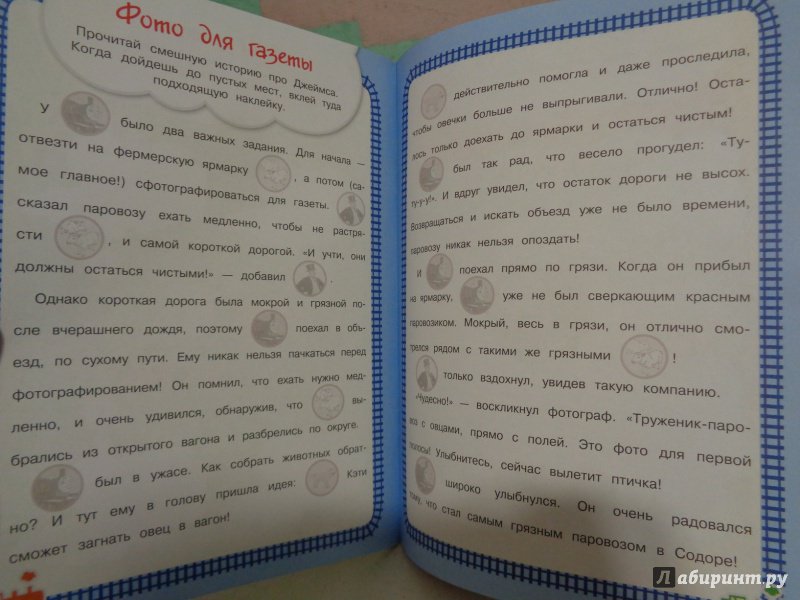 Фото для газеты
Прочитай смешную историю про Джеймса.
Когда дойдёшь до пустых мест, вклей туда
подходящую наклейку.
У было два важных задания. Для начала —
отвезти на фермерскую ярмарку , а потом (са-
мое главное!) сфотографироваться для газеты.
сказал паровозу ехать медленно, чтобы не растря-
сти , и самой короткой дорогой. «И учти, они
должны остаться чистыми!» — добавил .
Однако короткая дорога была мокрой и грязной по-
сле вчерашнего дождя, поэтому поехал в объ-
езд, по сухому пути. Ему никак нельзя пачкаться перед
фотографированием! Он помнил, что ехать нужно мед-
ленно, и очень удивился, обнаружив, что вы-
брались из открытого вагона и разбрелись по округе.
был в ужасе. Как собрать животных обрат-
но? И тут ему в голову пришла идея: Кэти
сможет загнать овец в вагон!
действительно помогла и даже проследила,
чтобы овечки больше не выпрыгивали. Отлично! Оста-
лось только доехать до ярмарки и остаться чистым!
был так рад, что весело прогудел: «Ту-
ту-у-у!». И вдруг увидел, что остаток дороги не высох.
Возвращаться и искать объезд уже не было времени,
паровозу никак нельзя опоздать!
И поехал прямо по грязи. Когда он прибыл
на ярмарку, уже не был сверкающим красным
паровозиком. Мокрый, весь в грязи, он отлично смо-
трелся рядом с такими же грязными !
только вздохнул, увидев такую компанию.
«Чудесно!» — воскликнул фотограф. «Труженик-паро-
воз с овцами, прямо с полей. Это фото для первой
полосы! Улыбнитесь, сейчас вылетит птичка!
широко улыбнулся. Он очень радовался
тому, что стал самым грязным паровозом в Содоре!
Лабиринт.ру